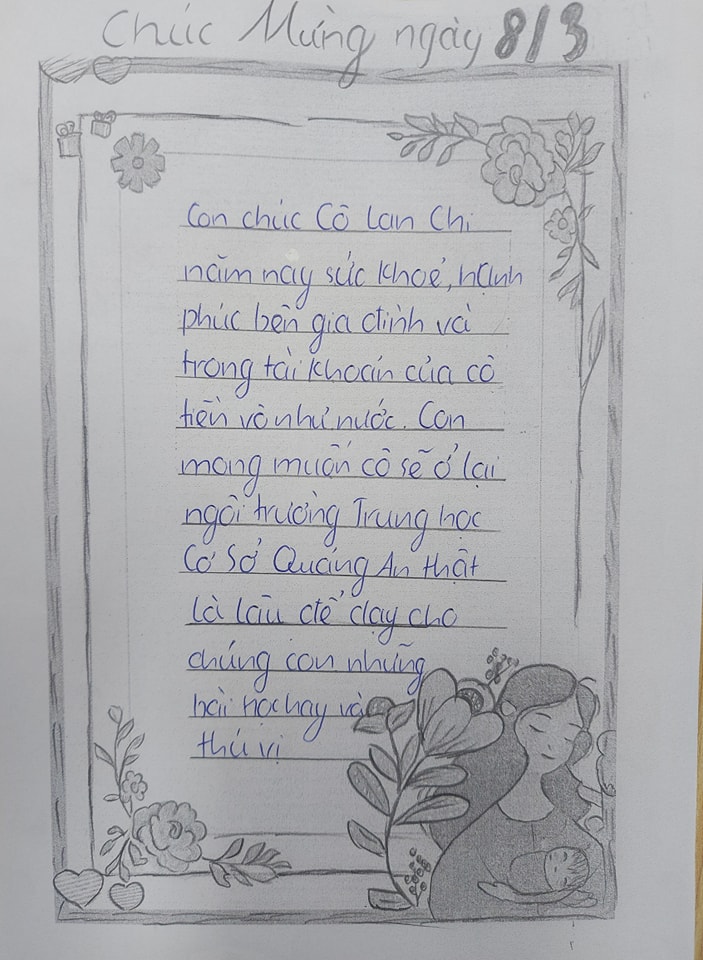 Chúc Mừng ngày 8/3
Con chúc Cô Lan Chi
năm nay sức khoẻ, hạnh
phúc bên gia đình và
trong tài khoản của cô
tiền vô như nước. Con
mong muốn cô sẽ ở lại
ngôi trường Trung học
Cơ Sở Quảng An thật
là lâu để dạy cho
chúng con những
bài học hay và
thú vị